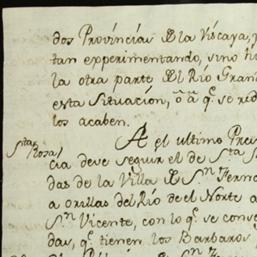 dos Provincias de la Viscaya, y
tan experimentando, sino
la otra parte del Rio Gran
esta Situacion, ô â q.^e se red
los acaben.
A el ultimo Presi
S^ta Rosa
cia deve seguir el de S^ta
das de la Villa de S^n Fern
a orillas del Rio de el Norte a
S^n Vicente, con lo q.^e se conse
das, q.^e tienen los Barbaros